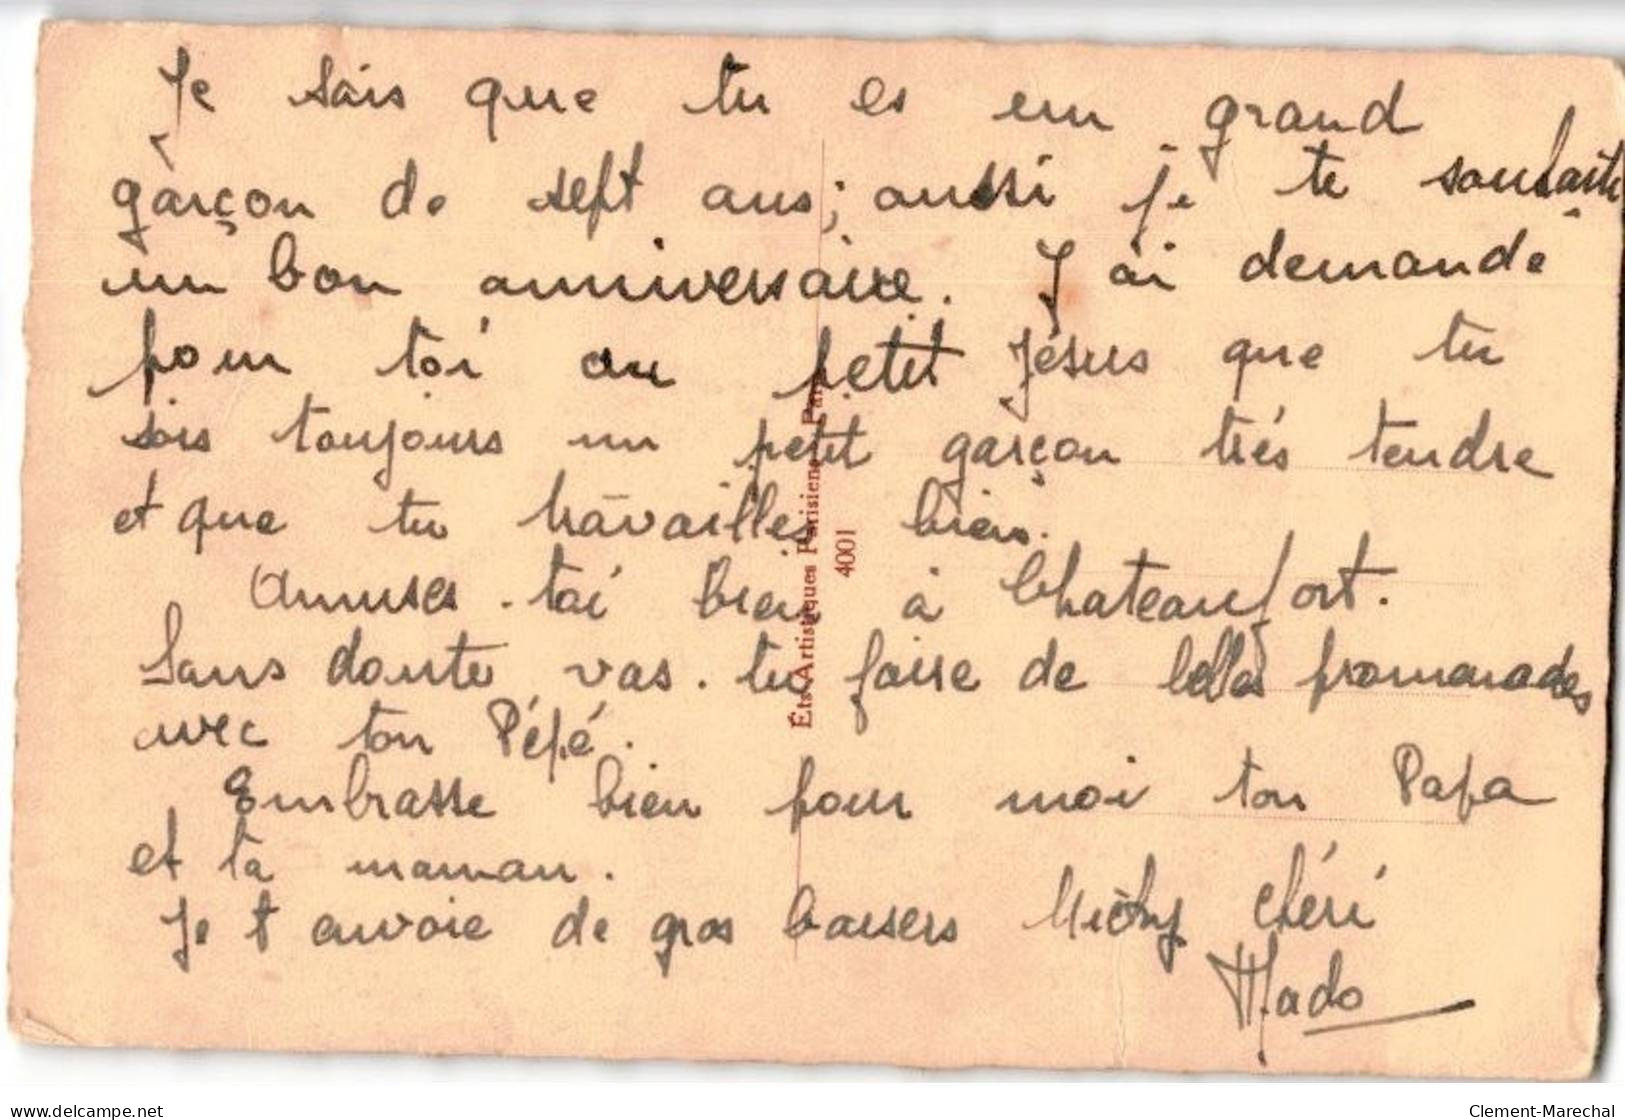 Je sais que tu es un grand
garçon de sept ans ; aussi je te souhaite
un bon anniversaire. J'ai demandé
pour toi au petit Jésus que tu
sois toujours un petit garçon trés tendre
et que tu travailles bien.
Amuses-toi bien à Chateaufort.
Sans doute vas-tu faire de belles promenades
avec ton Pépé.
Embrasse bien pour moi ton Papa
et ta maman.
Je t envoie de gros baisers Michy Chéri
Mado
Éts Artistiques Parisiens - Paris
4001
www.delcampe.net
Clement-Marechal